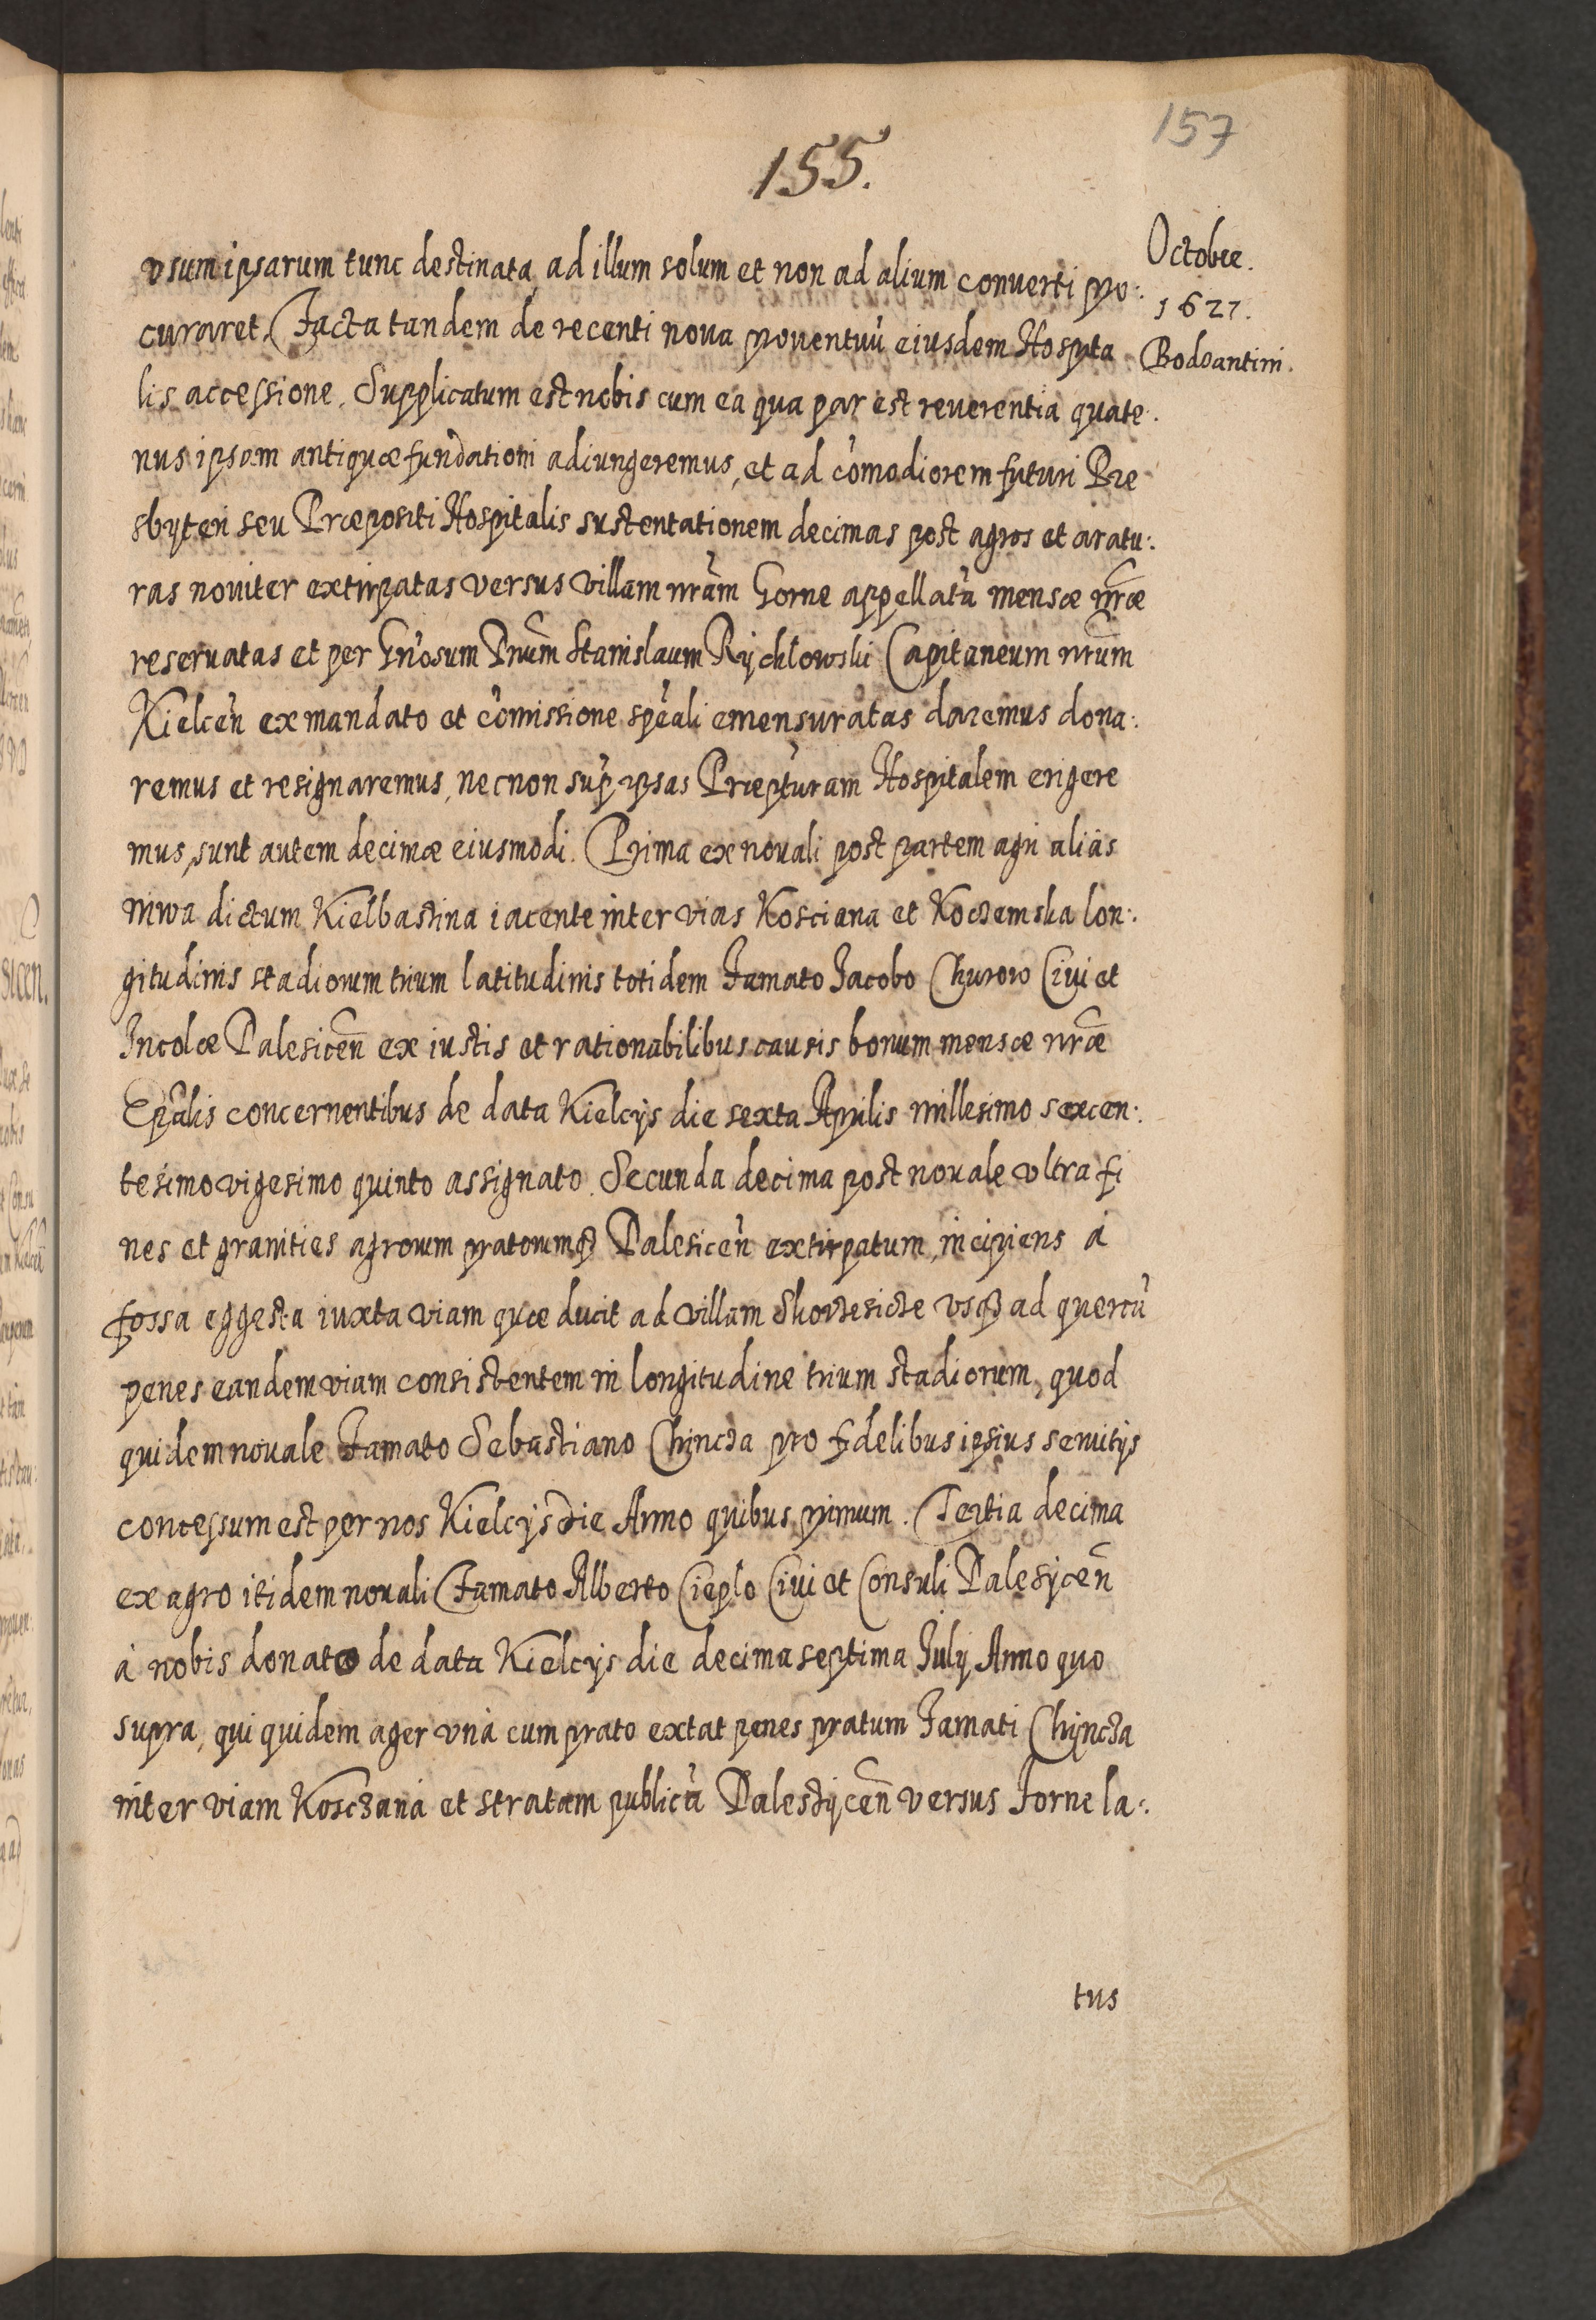 157
155.
Octobre.
1627.
Bodzantini.
vsum ipsarum tunc destinata, ad illum solum et non ad alium conuerti pro:
curaret. Facta tandem de recenti noua prouentuũ eiusdem Hospita
lis accessione. Supplicatum est nobis cum ea qua par est reuerentia quate.
nus ipsam antiquæ fundationi adiungeremus, et ad cõmodiorem futuri Pre
sbyteri seu Præpositi Hospitalis sustentationem decimas post agros et aratu:
ras nouiter extirpatas versus villam nrãm Gorne appellatũ mensæ nrãe
reseruatas et per Gñosum Dnũm Stanislaum Rychłowski Capitaneum nrũm
Kielceñ ex mandato et cõmissione spẽali emensuratas daremus dona:
remus et resignaremus, necnon sup ipsas Præpturam Hospitalem erigere
mus, sunt autem decimæ eiusmodi. Prima ex nouali post partem agri alias
niwa dictum Kiełbastina iacente inter vias Kosciena et Koczemska lon:
gitudinis stadiorum trium latitudinis totidem Famato Jacobo Churoro Ciui et
Incolæ Dalesiceñ ex iustis et rationabilibus causis bonum mensæ nrãe
Epãlis concernentibus de data Kielcijs die sexta Aprilis millesimo sexcen:
tesimo vigesimo quinto assignato. Secunda decima post nouale vltra fi
nes et granities agrorum pratorumq₃ Dalesiceñ extirpatum, incipiens á
fossa eggesta iuxta viam quæ ducit ad villam Skorzesicze vsq₃ ad quercũ
penes eandem viam consistentem in longitudine trium stadiorum, quod
quidem nouale Famato Sebastiano Chincza pro fidelibus ipsius seruitijs
concessum est per nos Kielcijs die Anno quibus primum. Tertia decima
ex agro itidem nouali Famato Alberto Cieplo Ciui et Consuli Dalesyceñ
á nobis donato de data Kielcijs die decima septima July Anno quo
supra, qui quidem ager vná cum prato extat penes pratum Famati Chyncza
inter viam Kosczaná et stratam publicũ Dalestyceñ versus Jorne la:
tus